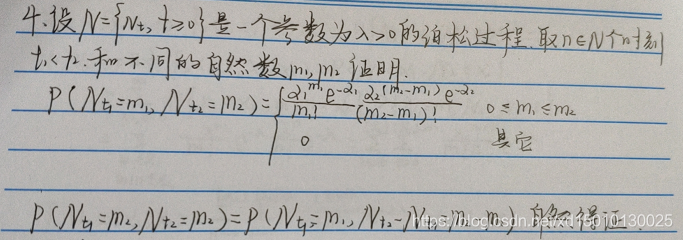 4.设N={Nt, t≥0}是一个参数为λ>0的泊松过程.取n∈N个时刻
t₁<t₂.和n不同的自然数m₁,m₂证明.
P(Nt₁=m₁, Nt₂=m₂)={ α₁^m₁ e^-α₁ α₂^(m₂-m₁) e^-α₂ / m₁! (m₂-m₁)! 0≤m₁≤m₂
0 其它
P(Nt₁=m₂, Nt₂=m₂)=P(Nt₁=m₁, Nt₂-Nt₁=m₂-m₁) 自然得证
https://blog.csdn.net/xt15010130025